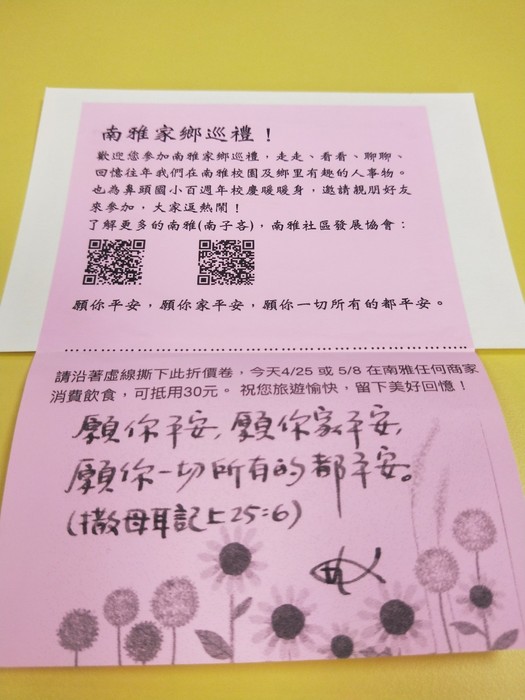 南雅家鄉巡禮！
歡迎您參加南雅家鄉巡禮，走走、看看、聊聊、
回憶往年我們在南雅校園及鄉里有趣的人事物。
也為鼻頭國小百週年校慶暖暖身，邀請親朋好友
來參加，大家逗熱鬧！
了解更多的南雅(南子吝)，南雅社區發展協會：
願你平安，願你家平安，願你一切所有的都平安。
請沿著虛線撕下此折價卷，今天4/25 或 5/8 在南雅任何商家
消費飲食，可抵用30元。 祝您旅遊愉快，留下美好回憶！
願你平安，願你家平安，
願你一切所有的都平安。
(撒母耳記上25:6)